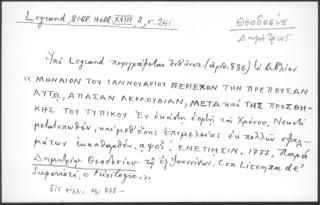 Legrand, Bibl. Hell. XVIII, 2, σ. 241
Θεοδοσίου
Δημήτριος
Ὑπὸ Legrand περιγράφεται (ἀριθ. 886) τὸ βιβλίον
«ΜΗΝΑΙΟΝ ΤΟΥ ΙΑΝΝΟΥΑΡΙΟΥ ΠΕΡΙΕΧΟΝ ΤΗΝ ΠΡΕΠΟΥΣΑΝ
ΑΥΤΩ, ΑΠΑΣΑΝ ΑΚΟΛΟΥΘΙΑΝ, ΜΕΤΑ καὶ ΤΗΣ ΠΡΟΣΘΗ-
ΚΗΣ ΤΟΥ ΤΥΠΙΚΟΥ Ἐν ἑκάστῃ ἑορτῇ τοῦ Χρόνου, Νεωστὶ
μετατυπωθέν, καὶ μεθ' ὅσης ἐπιμελείας ἐκ πολλῶν σφαλ-
μάτων ἐκκαθαρθέν. αψοζ΄. ΕΝΕΤΙΗΣΙΝ, 1777, Παρὰ
Δημητρίῳ Θεοδοσίου τῷ ἐξ Ἰωαννίνων. Con Licenza de'
Superiori, e Privilegio.»